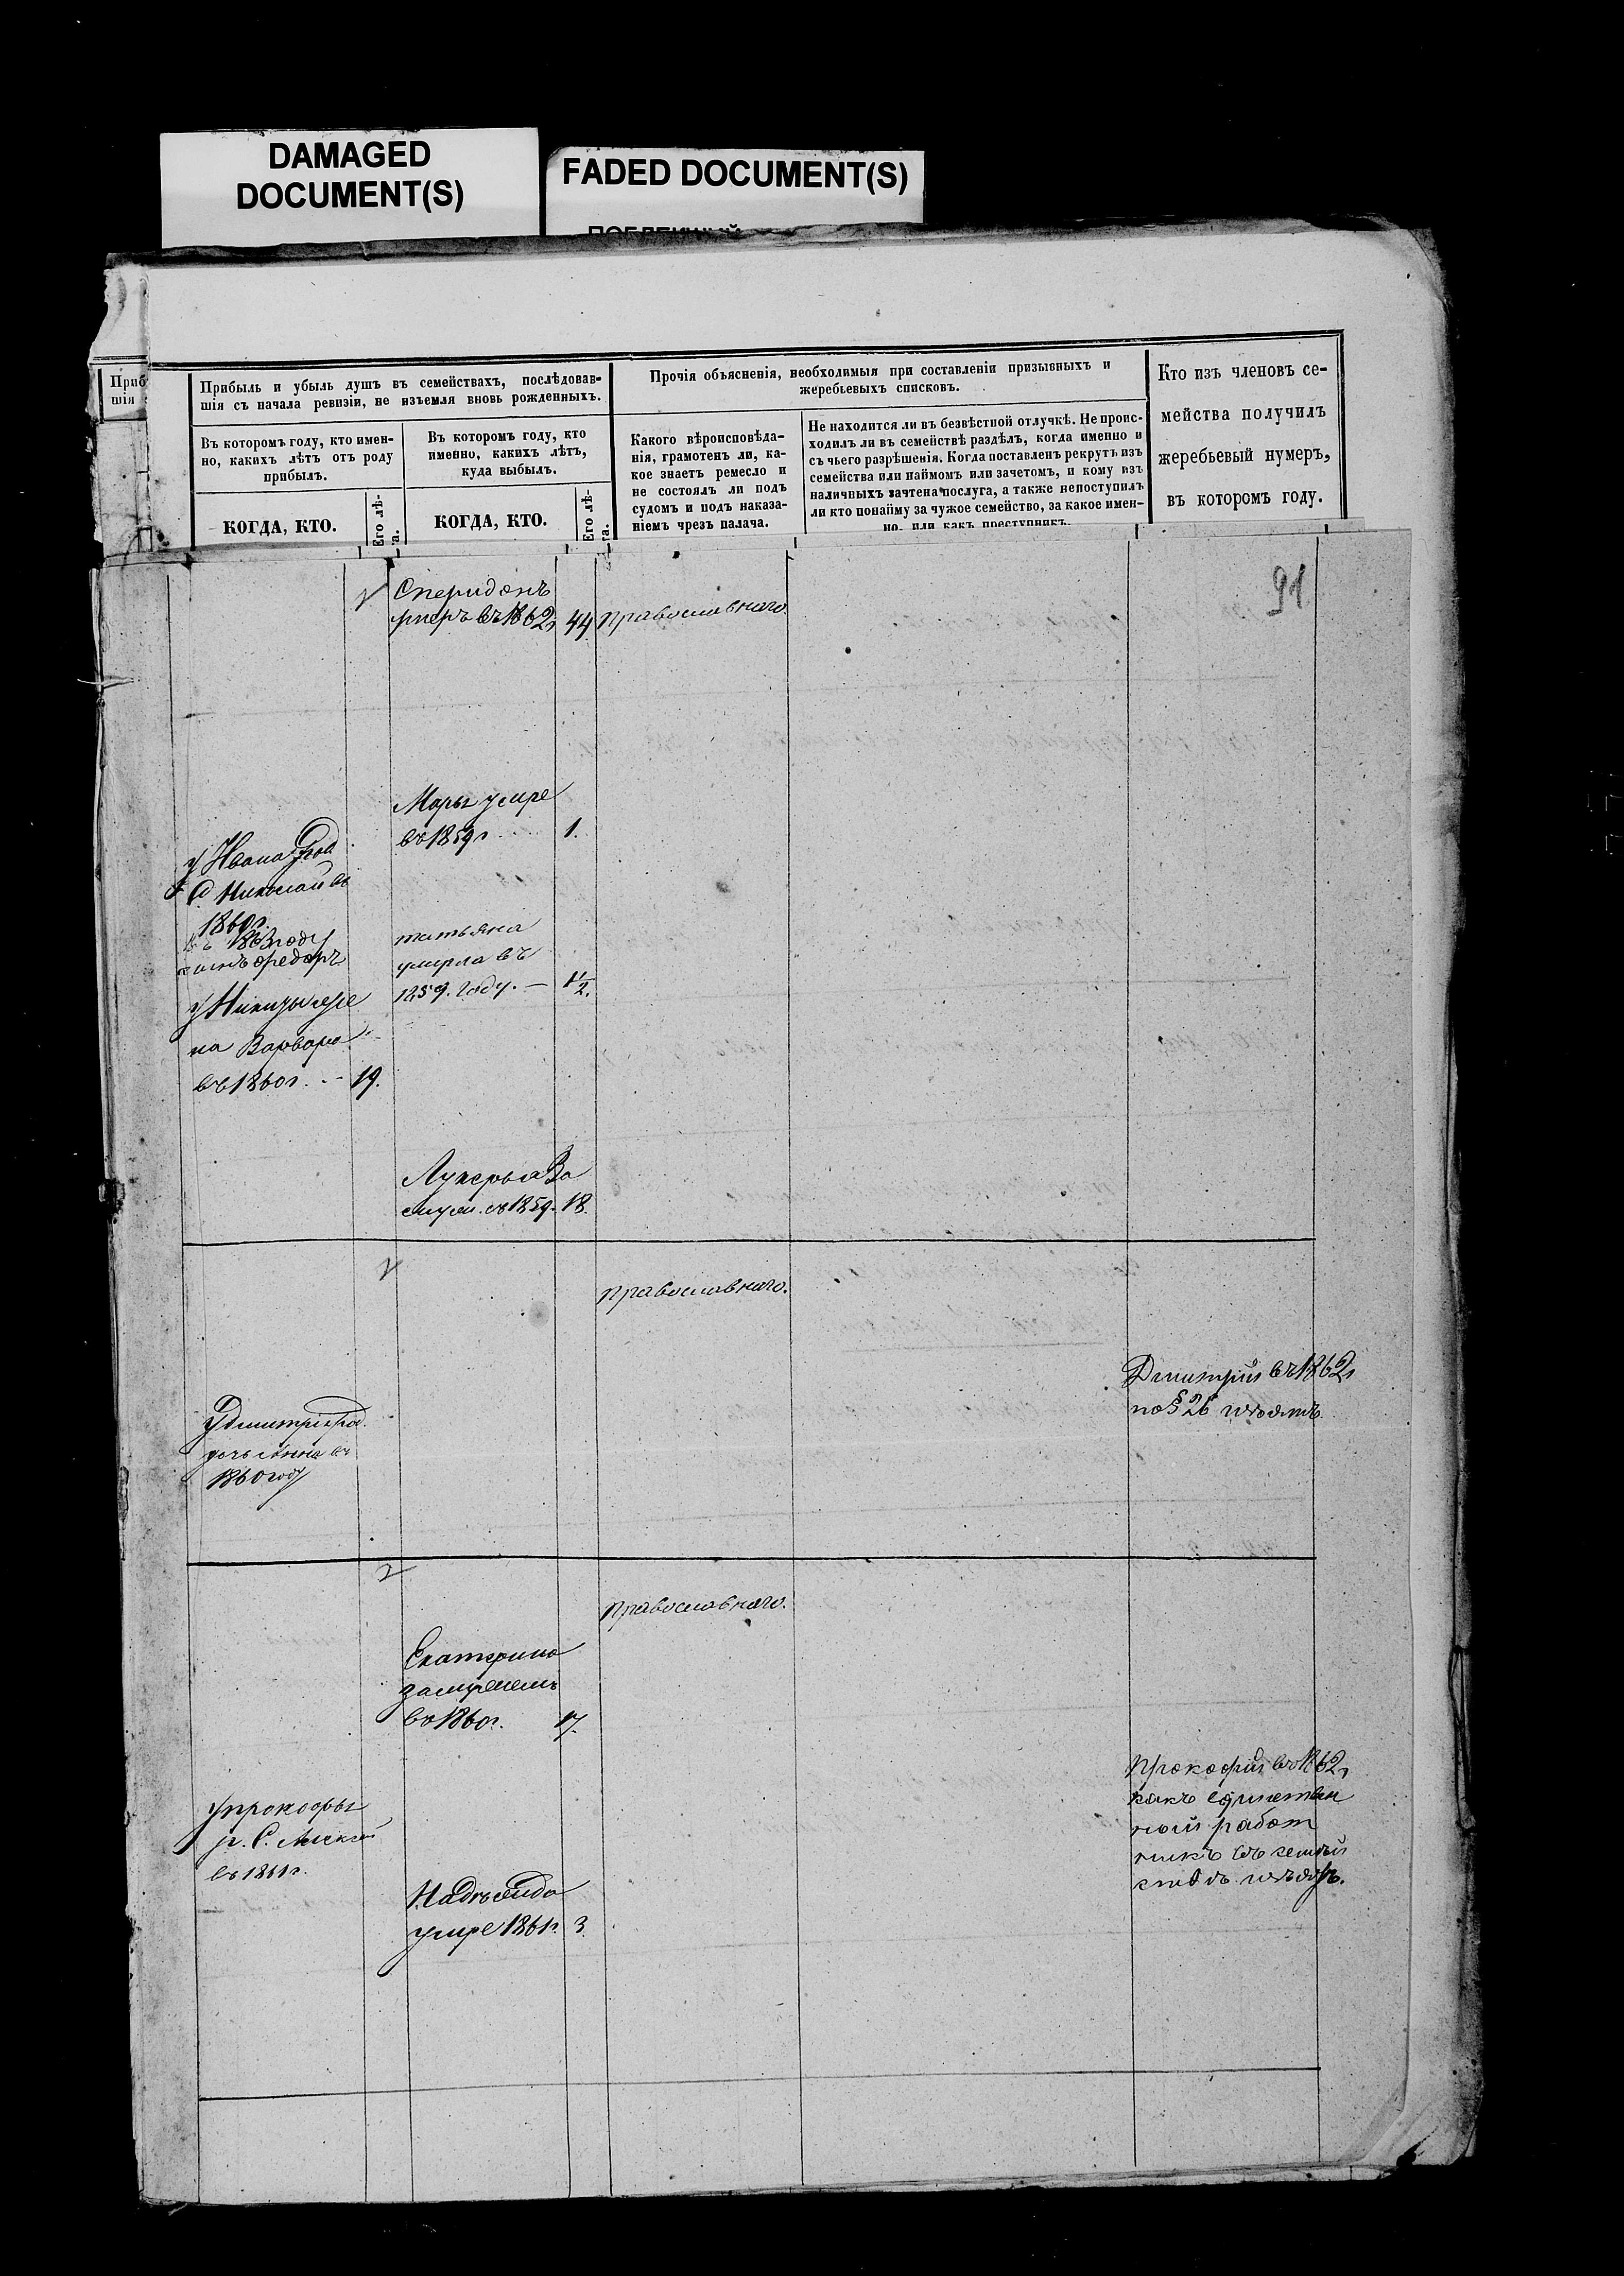 DAMAGED
DOCUMENT(S)
FADED DOCUMENT(S)
Приб
шія
Прибыль и убыль душъ въ семействахъ, послѣдовав-
шія съ начала ревизіи, не изъемля вновь рожденныхъ.
Въ которомъ году, кто имен-
но, какихъ лѣтъ отъ роду
прибылъ.
КОГДА, КТО.
Его лѣ-
та.
Въ которомъ году, кто
именно, какихъ лѣтъ,
куда выбылъ.
КОГДА, КТО.
Его лѣ-
та.
Прочія объясненія, необходимыя при составленіи призывныхъ и
жеребьевыхъ списковъ.
Какого вѣроисповѣда-
нія, грамотенъ ли, ка-
кое знаетъ ремесло и
не состоялъ ли подъ
судомъ и подъ наказа-
ніемъ чрезъ палача.
Не находится ли въ безвѣстной отлучкѣ. Не проис-
ходилъ ли въ семействѣ раздѣлъ, когда именно и
съ чьего разрѣшенія. Когда поставленъ рекрутъ изъ
семейства или наймомъ или зачетомъ, и кому изъ
наличныхъ зачтена послуга, а также непоступилъ
ли кто понайму за чужое семейство, за какое имен-
но, или какъ преступникъ.
Кто изъ членовъ се-
мейства получилъ
жеребьевый нумеръ,
въ которомъ году.
91
Сперидонъ
умеръ въ 1862г 44
православнаго.
Марья умре
въ 1859г 1.
у Ивана род
С Николай въ
1860г.
въ 1863 году
сынъ Федоръ
татьяна
умерла въ
1859. году. — 1 1/2.
у Никиты же
на Варвара
въ 1860г. - 19.
Лукерья За
муж. въ 1859. 18.
православнаго.
Дмитрій въ 1862г
по § 26 изъятъ.
У дмитрія род.
дочь Анна въ
1860 году
православнаго.
Екатерина
замужемъ
въ 1860г. 17.
Прокофій въ 1862г
какъ единствен
ный работ
никъ въ семей
ствѣ изъятъ.
у прокофья
р. С. Алексей
въ 1861г.
Надѣжда
умре 1861г. 3